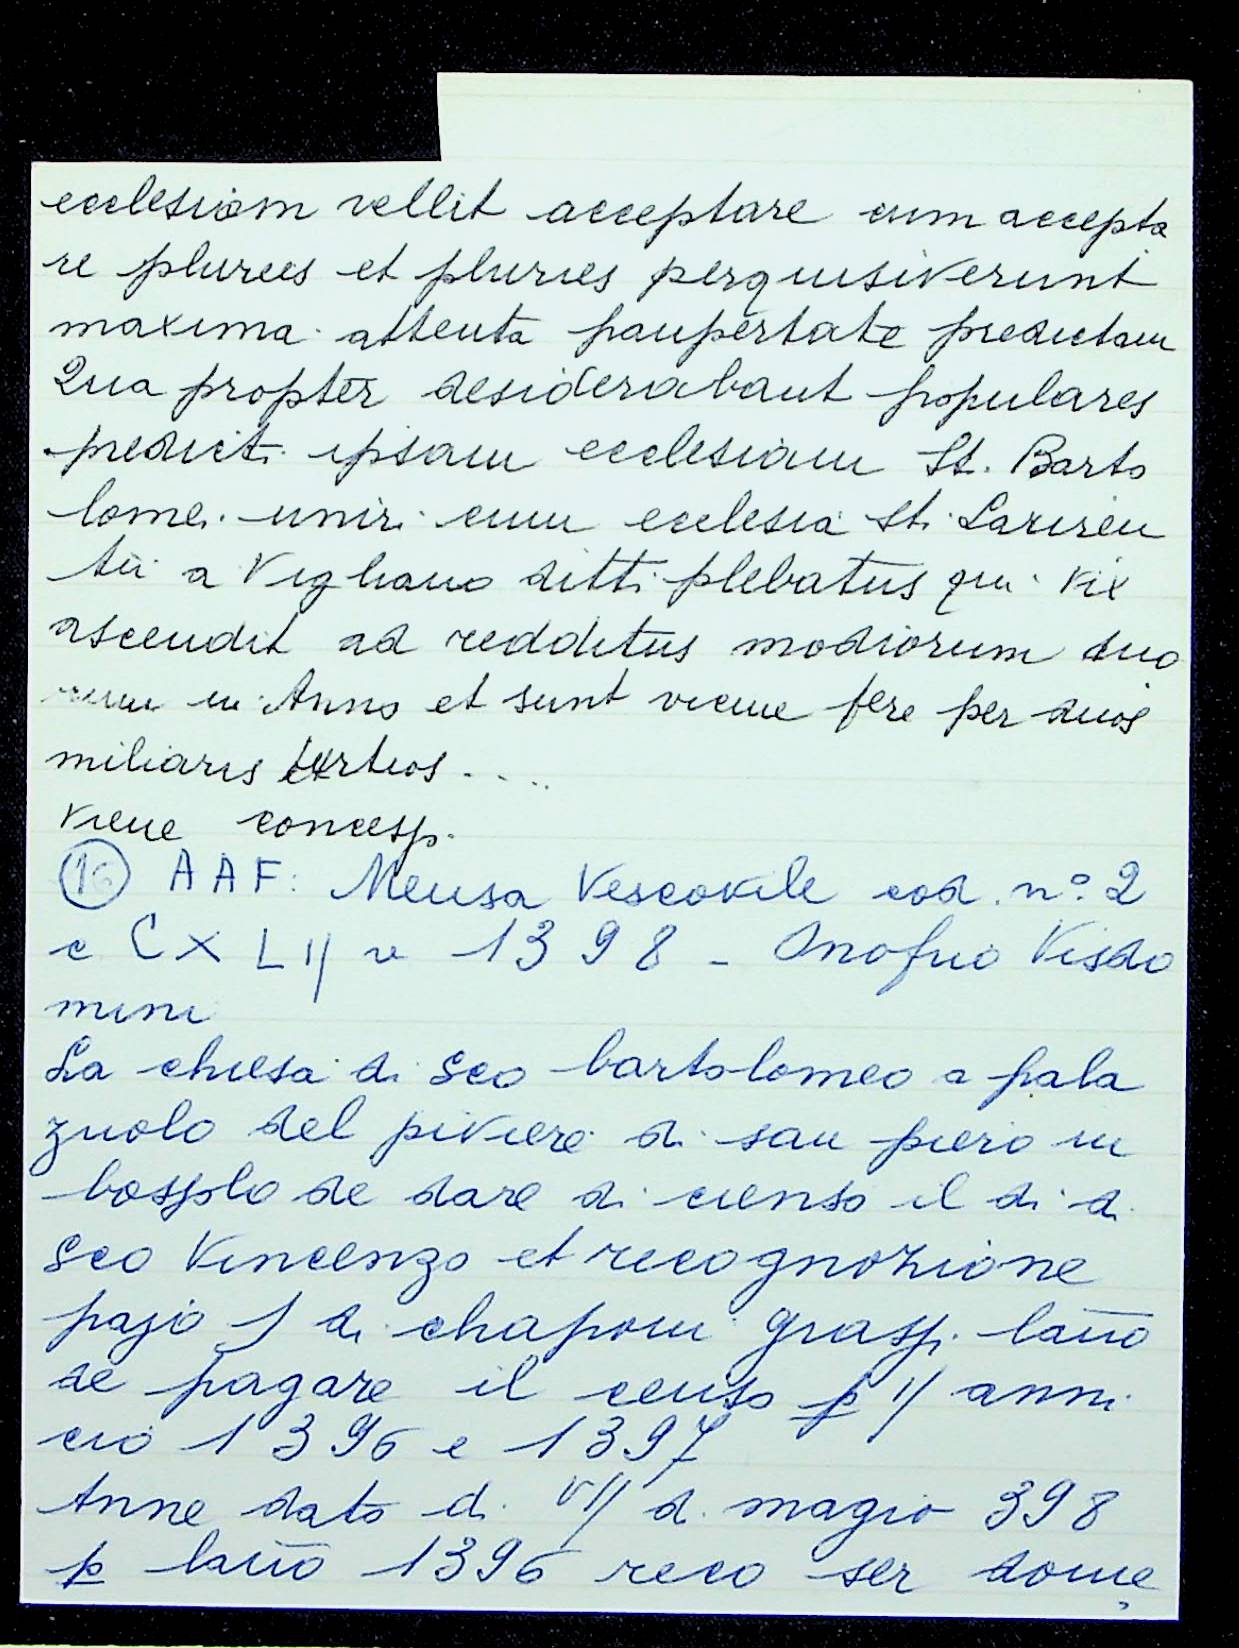 ecclesiam vellit acceptare cum accepta
re plurees et pluries perquisiverunt
maxima attenta paupertate predictam
Qua propter desiderabant populares
predict. ipsam ecclesiam St. Barto
lomei uniri cum ecclesia sti Lauren
tii a Vigliano ditti plebatus qui vix
ascendit ad redditus modiorum duo
rum in Anno et sunt vicine fere per duos
miliaris
viene concess.
(16) AAF: Mensa Vescovile cod. n° 2
c CXLII v 1398 - Onofrio Visdo
mini
La chiesa di Sco bartolomeo a pala
zuolo del piviere di san piero in
bossolo de dare di cienso il di di
Sco Vincenzo et recognozione
pajo 1 di chaponi grassi. lano
de pagare il censo p II anni
cio 1396 e 1397
Anne dato d. VII d. magio 398
p lano 1396 reco ser dome